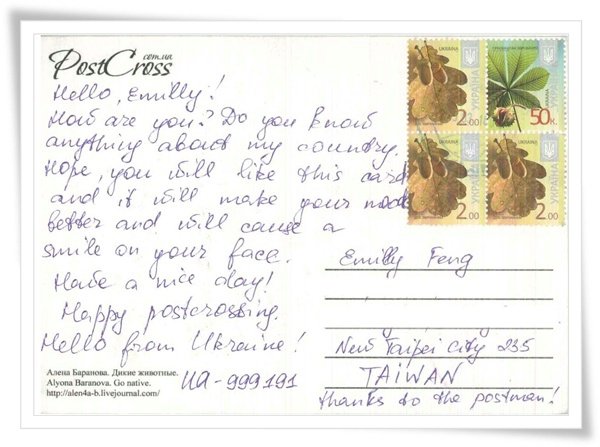 com.ua
PostCross
Hello, Emilly!
How are you? Do you know
anything about my country.
Hope, you will like this card
and it will make your mood
better and will cause a
smile on your face.
Have a nice day!
Happy postcrossing.
Hello from Ukraine!
UA-999191
Алена Баранова. Дикие животные.
Alyona Baranova. Go native.
http://alen4a-b.livejournal.com/
UKRAINE
УКРАЇНА
2.00
УКРАЇНА
50к.
УКРАЇНА
2.00
УКРАЇНА
2.00
Emilly Feng
New Taipei City 235
TAIWAN
thanks to the postman!